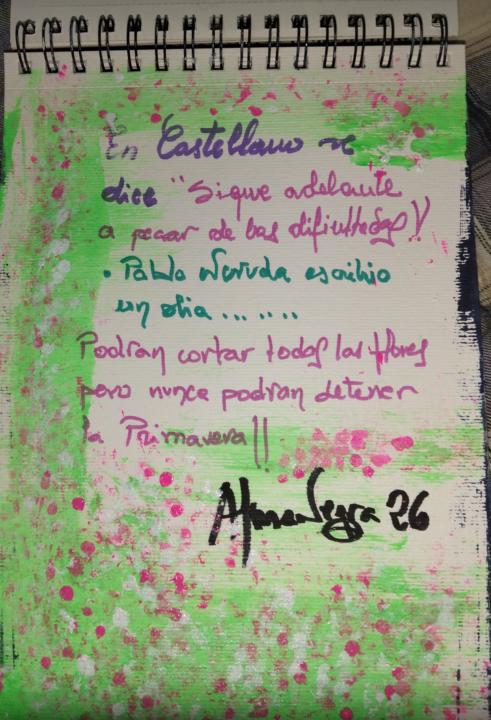 En Castellano se
dice "Sigue adelante
a pesar de las dificultades"!
. Pablo Neruda escribio
un dia ... ....
Podran cortar todas las flores
pero nunca podran detener
la Primavera!!
Alma Negra 26